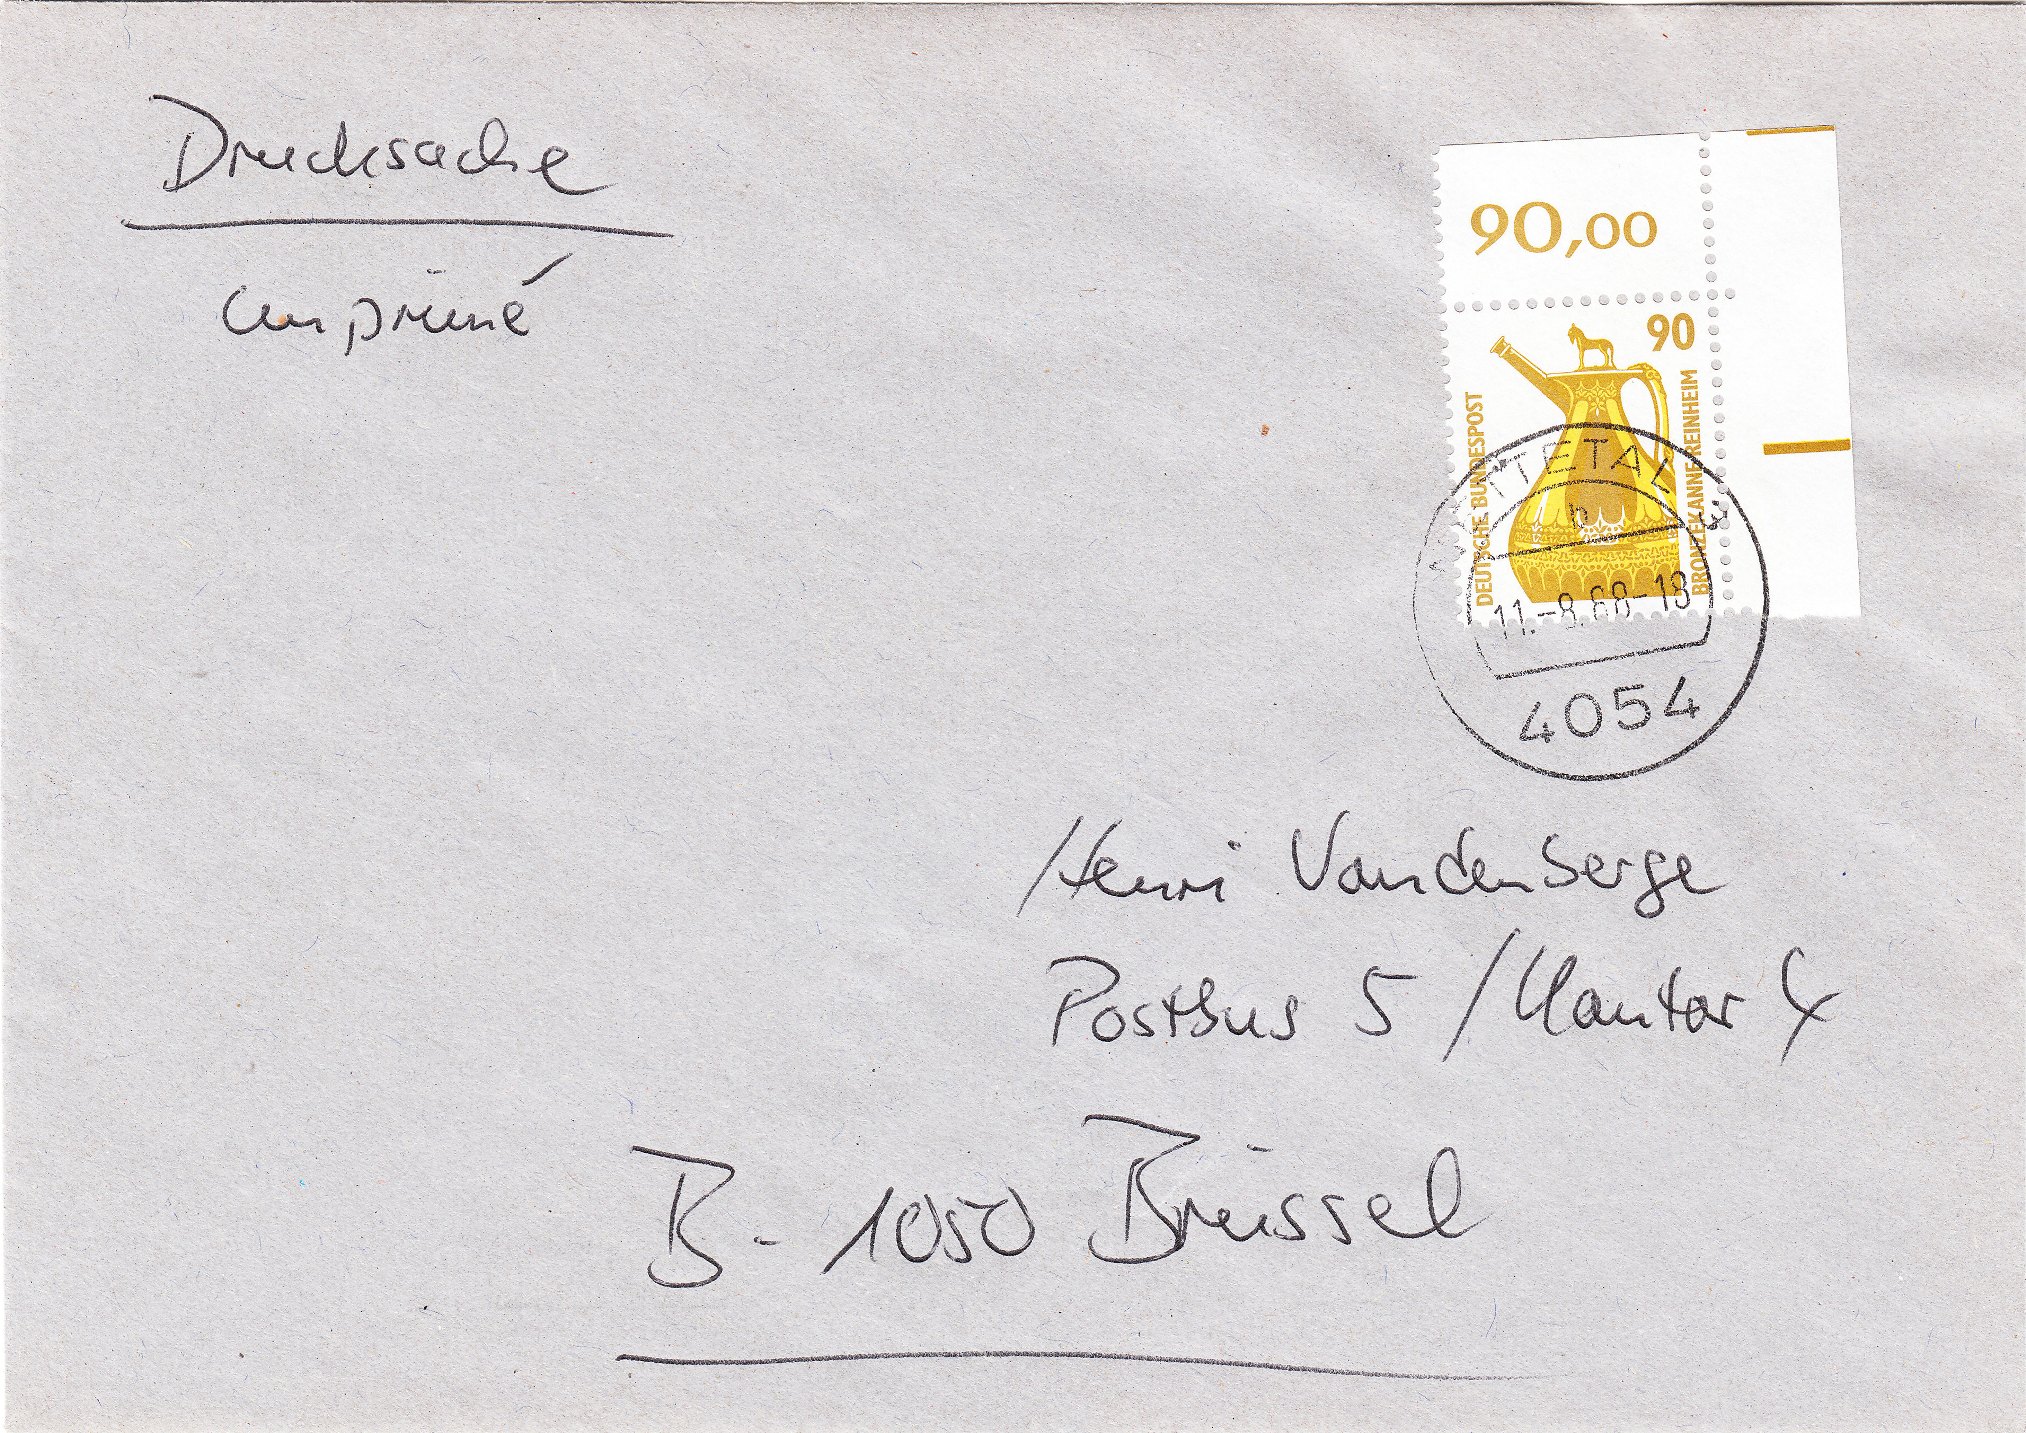 Drucksache
imprimé
90,00
90
DEUTSCHE BUNDESPOST
BRONZEKANNE REINHEIM
NETTETAL
b
11.-8.88-18
4054
Henri Vandenberge
Postbus 5 / Kantor 4
B-1050 Brüssel